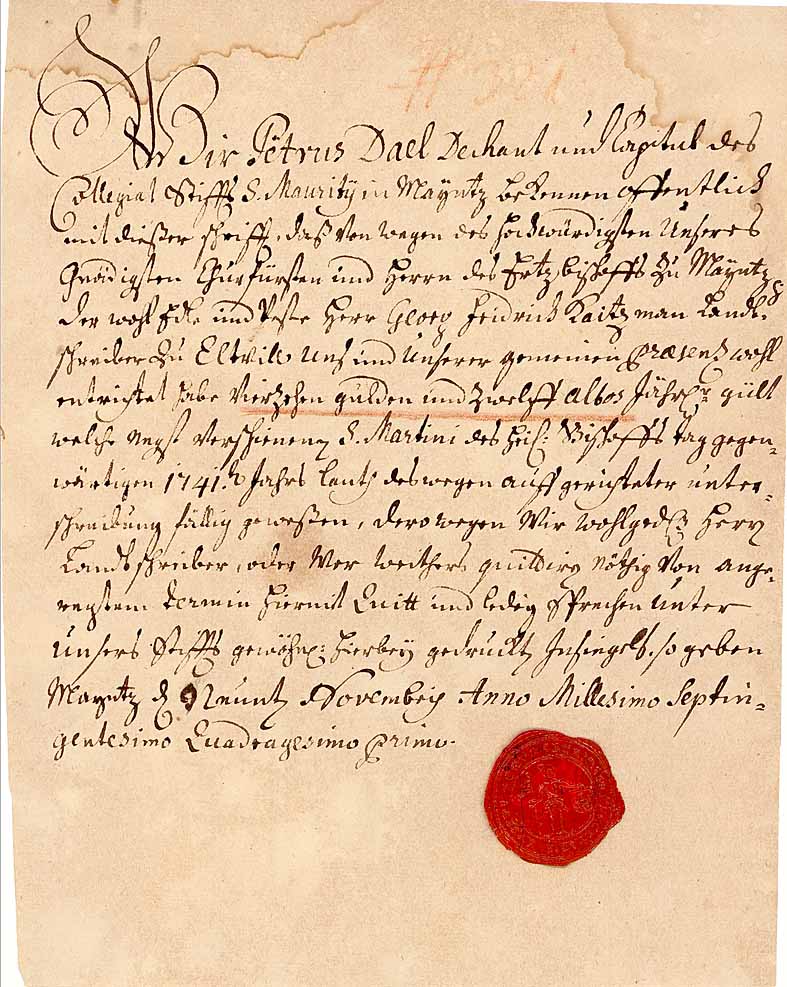 # 321
Wir Petrus Dael Dechant und Capitul des
Collegiat Stiffts S. Mauritij in Mayntz bekennen offentlich
mit dießer schrifft, daß von wegen des hochwürdigsten Unseres
Gnädigsten Churfürsten und Herrn des Ertzbischoffs zu Mayntz
der wohl Edle und Veste Herr Georg Heidrich Kaitzman Landt-
schreiber zu Eltvill Uns und Unserer gemeinen Præsentz wohl
entrichtet habe Vierzehen gulden und zwelff albos Jährl: gült
welche negst verschienen S. Martini des heil: Bischoffs tag gegen-
wärtigen 1741. Jahrs lauth deswegen auffgerichteter unter-
schreibung fällig geweßen, derowegen Wir wohlged: Herrn
Landtschreiber, oder Wer weithers quittirens nöthig von ange-
regtem Termin hiermit Quitt und ledig sprechen unter
unsers Stiffts gewöhnl: hierbey gedruckten Insiegels. so geben
Mayntz d. Neunten Novembris Anno Millesimo Septin-
gentesimo Quadragesimo Primo.